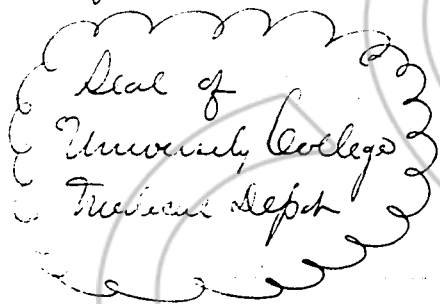 Seal of
University College
Medical Dept